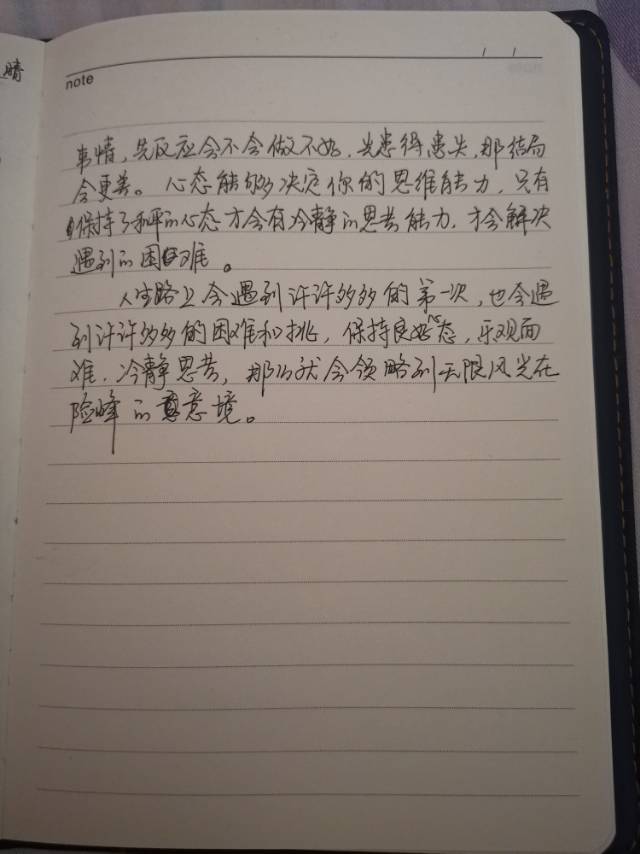 晴
note
事情,先反应会不会做不好,先患得患失,那结局
会更差。心态能够决定你的思维能力,只有
保持了和平的心态才会有冷静的思考能力,才会解决
遇到的困难。
人生路上会遇到许许多多的第一次,也会遇
到许许多多的困难和挑,保持良好心态,乐观面
难,冷静思考,那么就会领略到无限风光在
险峰的意境。